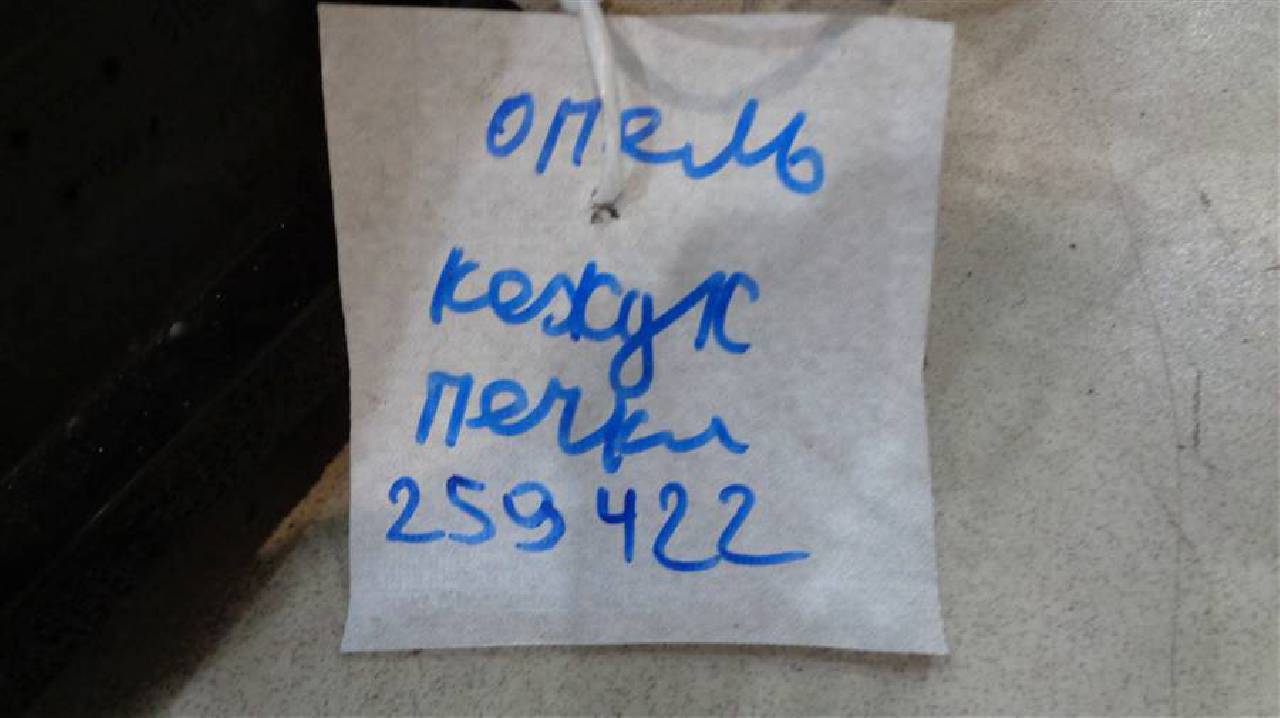 опель
кожух
печки
259422